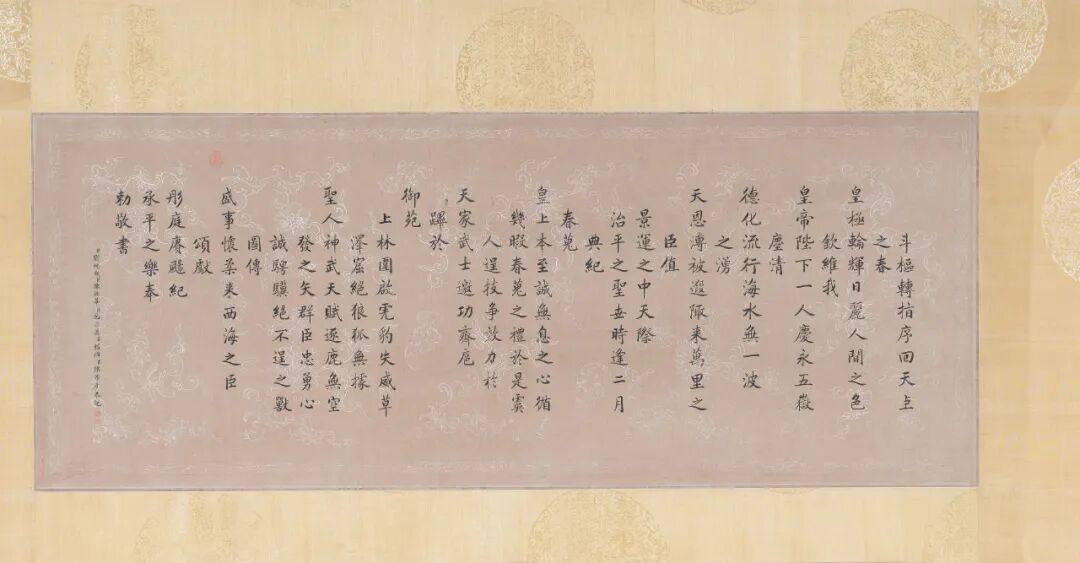 斗樞轉指序回天上
之春
皇極輪輝日麗人間之色
欽維我
皇帝陛下一人慶永五嶽
塵清
德化流行海水無一波
之湧
天恩溥被遐陬来萬里之
臣值
景運之中天際
治平之聖世時逢二月
典紀
春蒐
皇上本至誠無息之心循
幾暇春蒐之禮於是虞
人逞技争放力於
天家武士邀功齊扈
蹕於
御苑
上林圍啟虎豹失威草
澤窟絕狼狐無據
聖人神武天賦逐鹿無空
發之矢群臣忠勇心
誠騁驥絕不逞之獸
圖傳
盛事懷柔来西海之臣
頌獻
彤庭賡颺紀
承平之樂奉
勅敬書